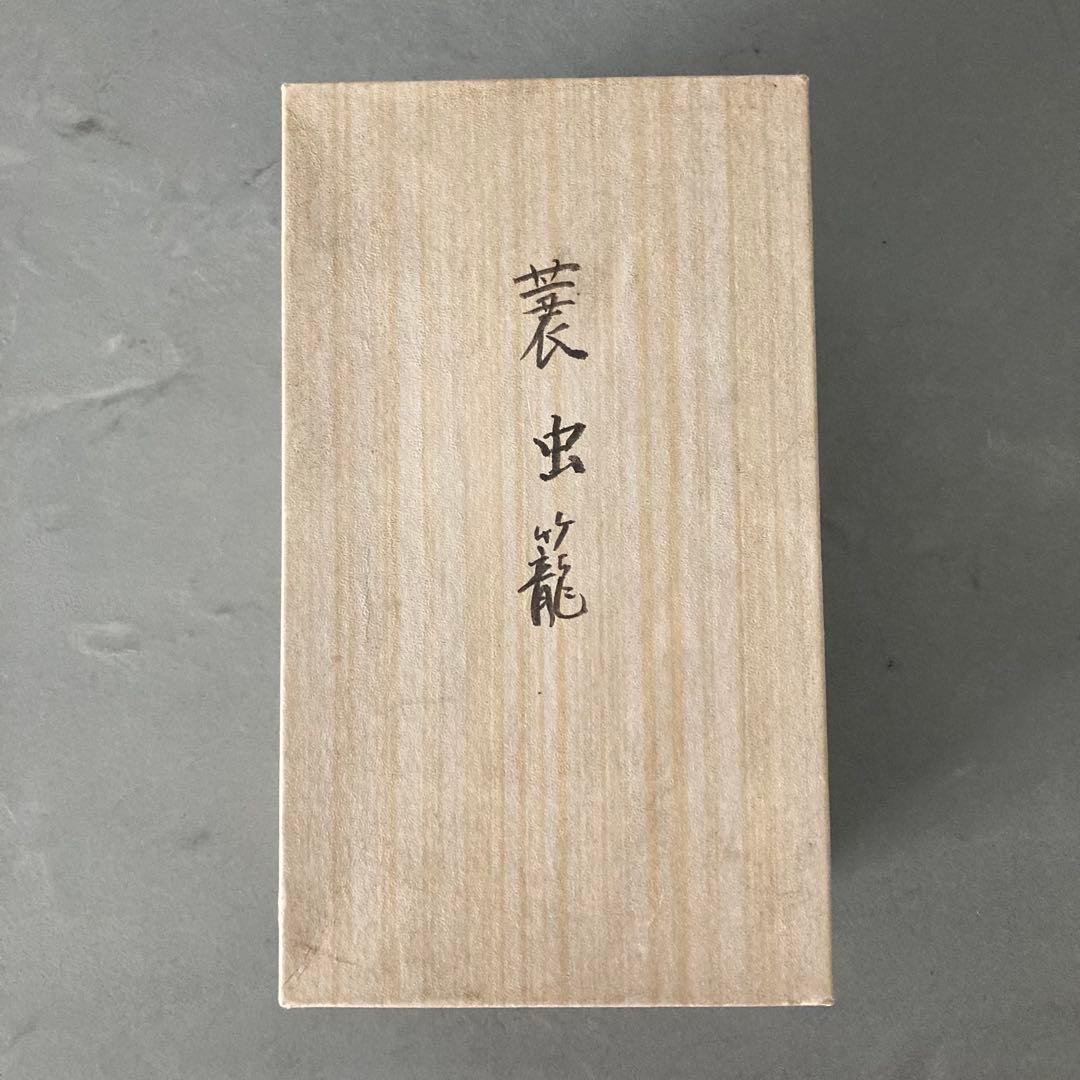 蓑虫籠